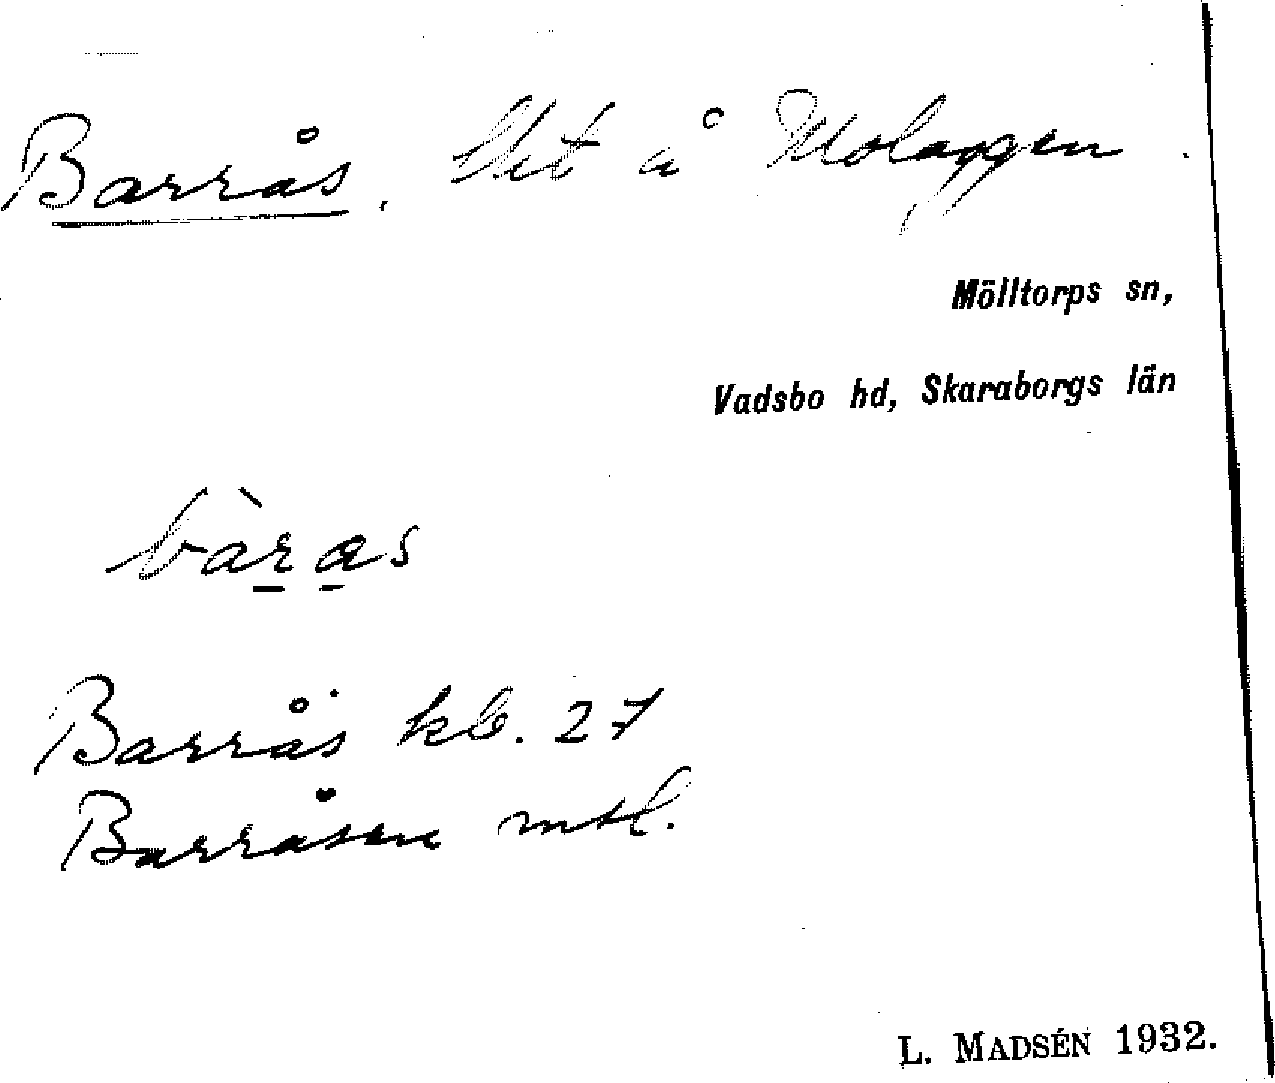 Barrås. lht å Molaggen.
Mölltorps sn,
Vadsbo hd, Skaraborgs län
bàras
Barrås kb. 27
Barråsen mtl.
L. MADSÉN 1932.